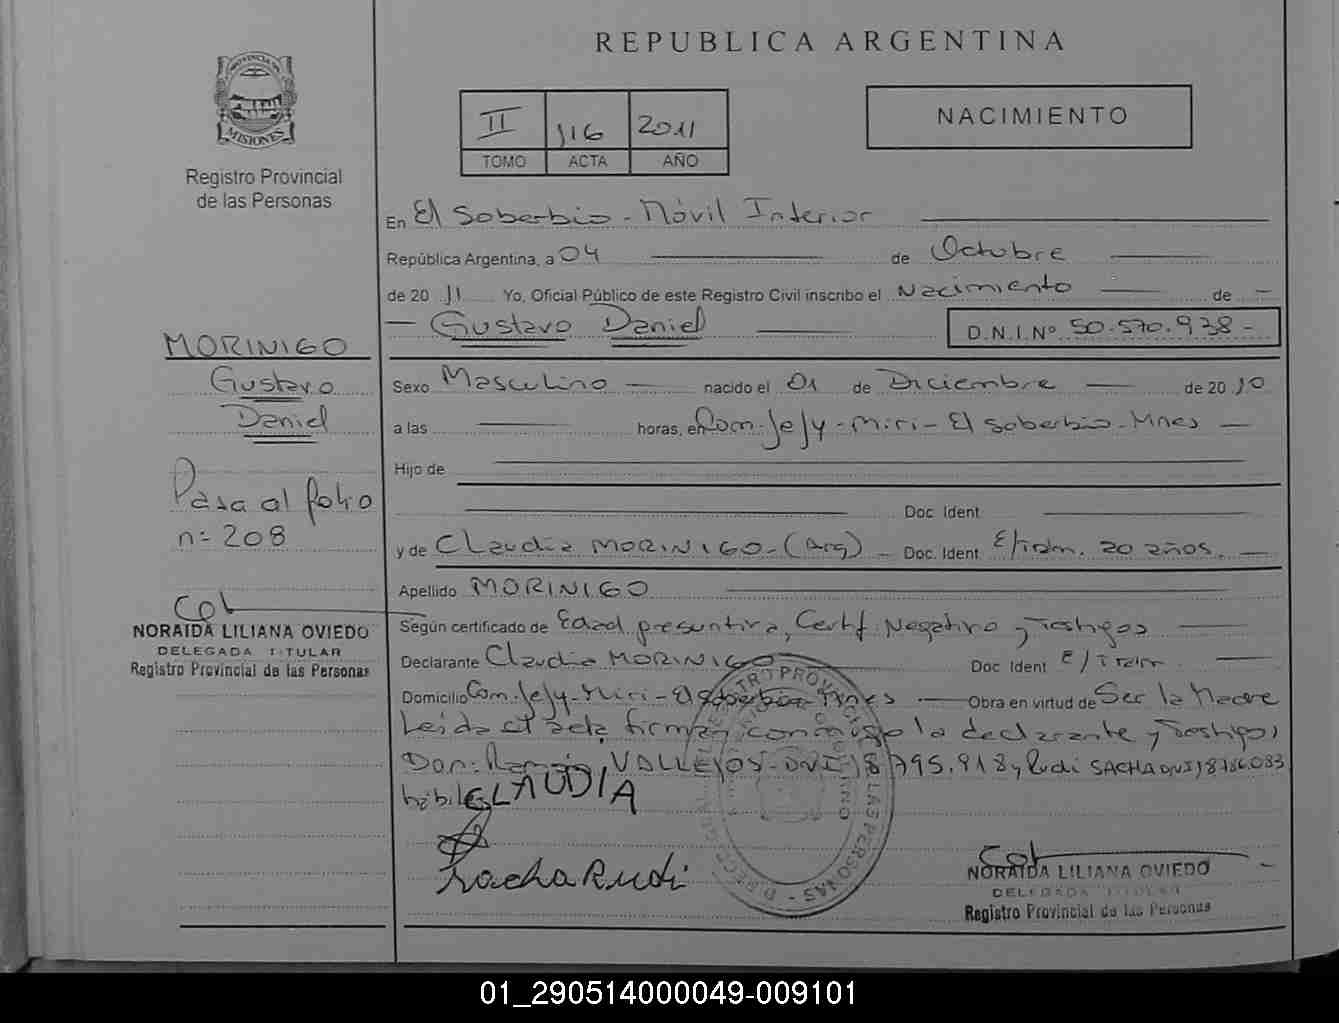 REPUBLICA ARGENTINA
PROVINCIA DE
MISIONES
Registro Provincial
de las Personas
II 116 2011
TOMO ACTA AÑO
NACIMIENTO
En El Soberbio - Móvil Interior
República Argentina, a 04 de Octubre
de 20 11 Yo, Oficial Público de este Registro Civil inscribo el Nacimiento de
Gustavo Daniel D.N.I. Nº 50.570.938 -
MORINIGO
Gustavo
Daniel
Pasa al folio
n= 208
NORAIDA LILIANA OVIEDO
DELEGADA TITULAR
Registro Provincial de las Personas
Sexo Masculino nacido el 01 de Diciembre de 20 10
a las horas, en Com. Jejy - Miri - El Soberbio - Mnes
Hijo de
Doc. Ident.
y de Claudia MORINIGO - (Arg) - Doc. Ident. E/trám. 20 años.
Apellido MORINIGO
Según certificado de Edad presuntiva, Certf. Negativo y Testigos
Declarante Claudia MORINIGO Doc. Ident. E/Trám
Domicilio Com. Jejy - Miri - El Soberbio - Mnes Obra en virtud de Ser la Madre
Leída el acta firman conmigo la declarante y Testigos
Don: Ramón VALLEJOS - DNI 18.795.918 y Rudi SACHA DNI 18786033
hábiles
CLAUDIA
Sacha Rudi
NORAIDA LILIANA OVIEDO
DELEGADA TITULAR
Registro Provincial de las Personas
01_290514000049-009101